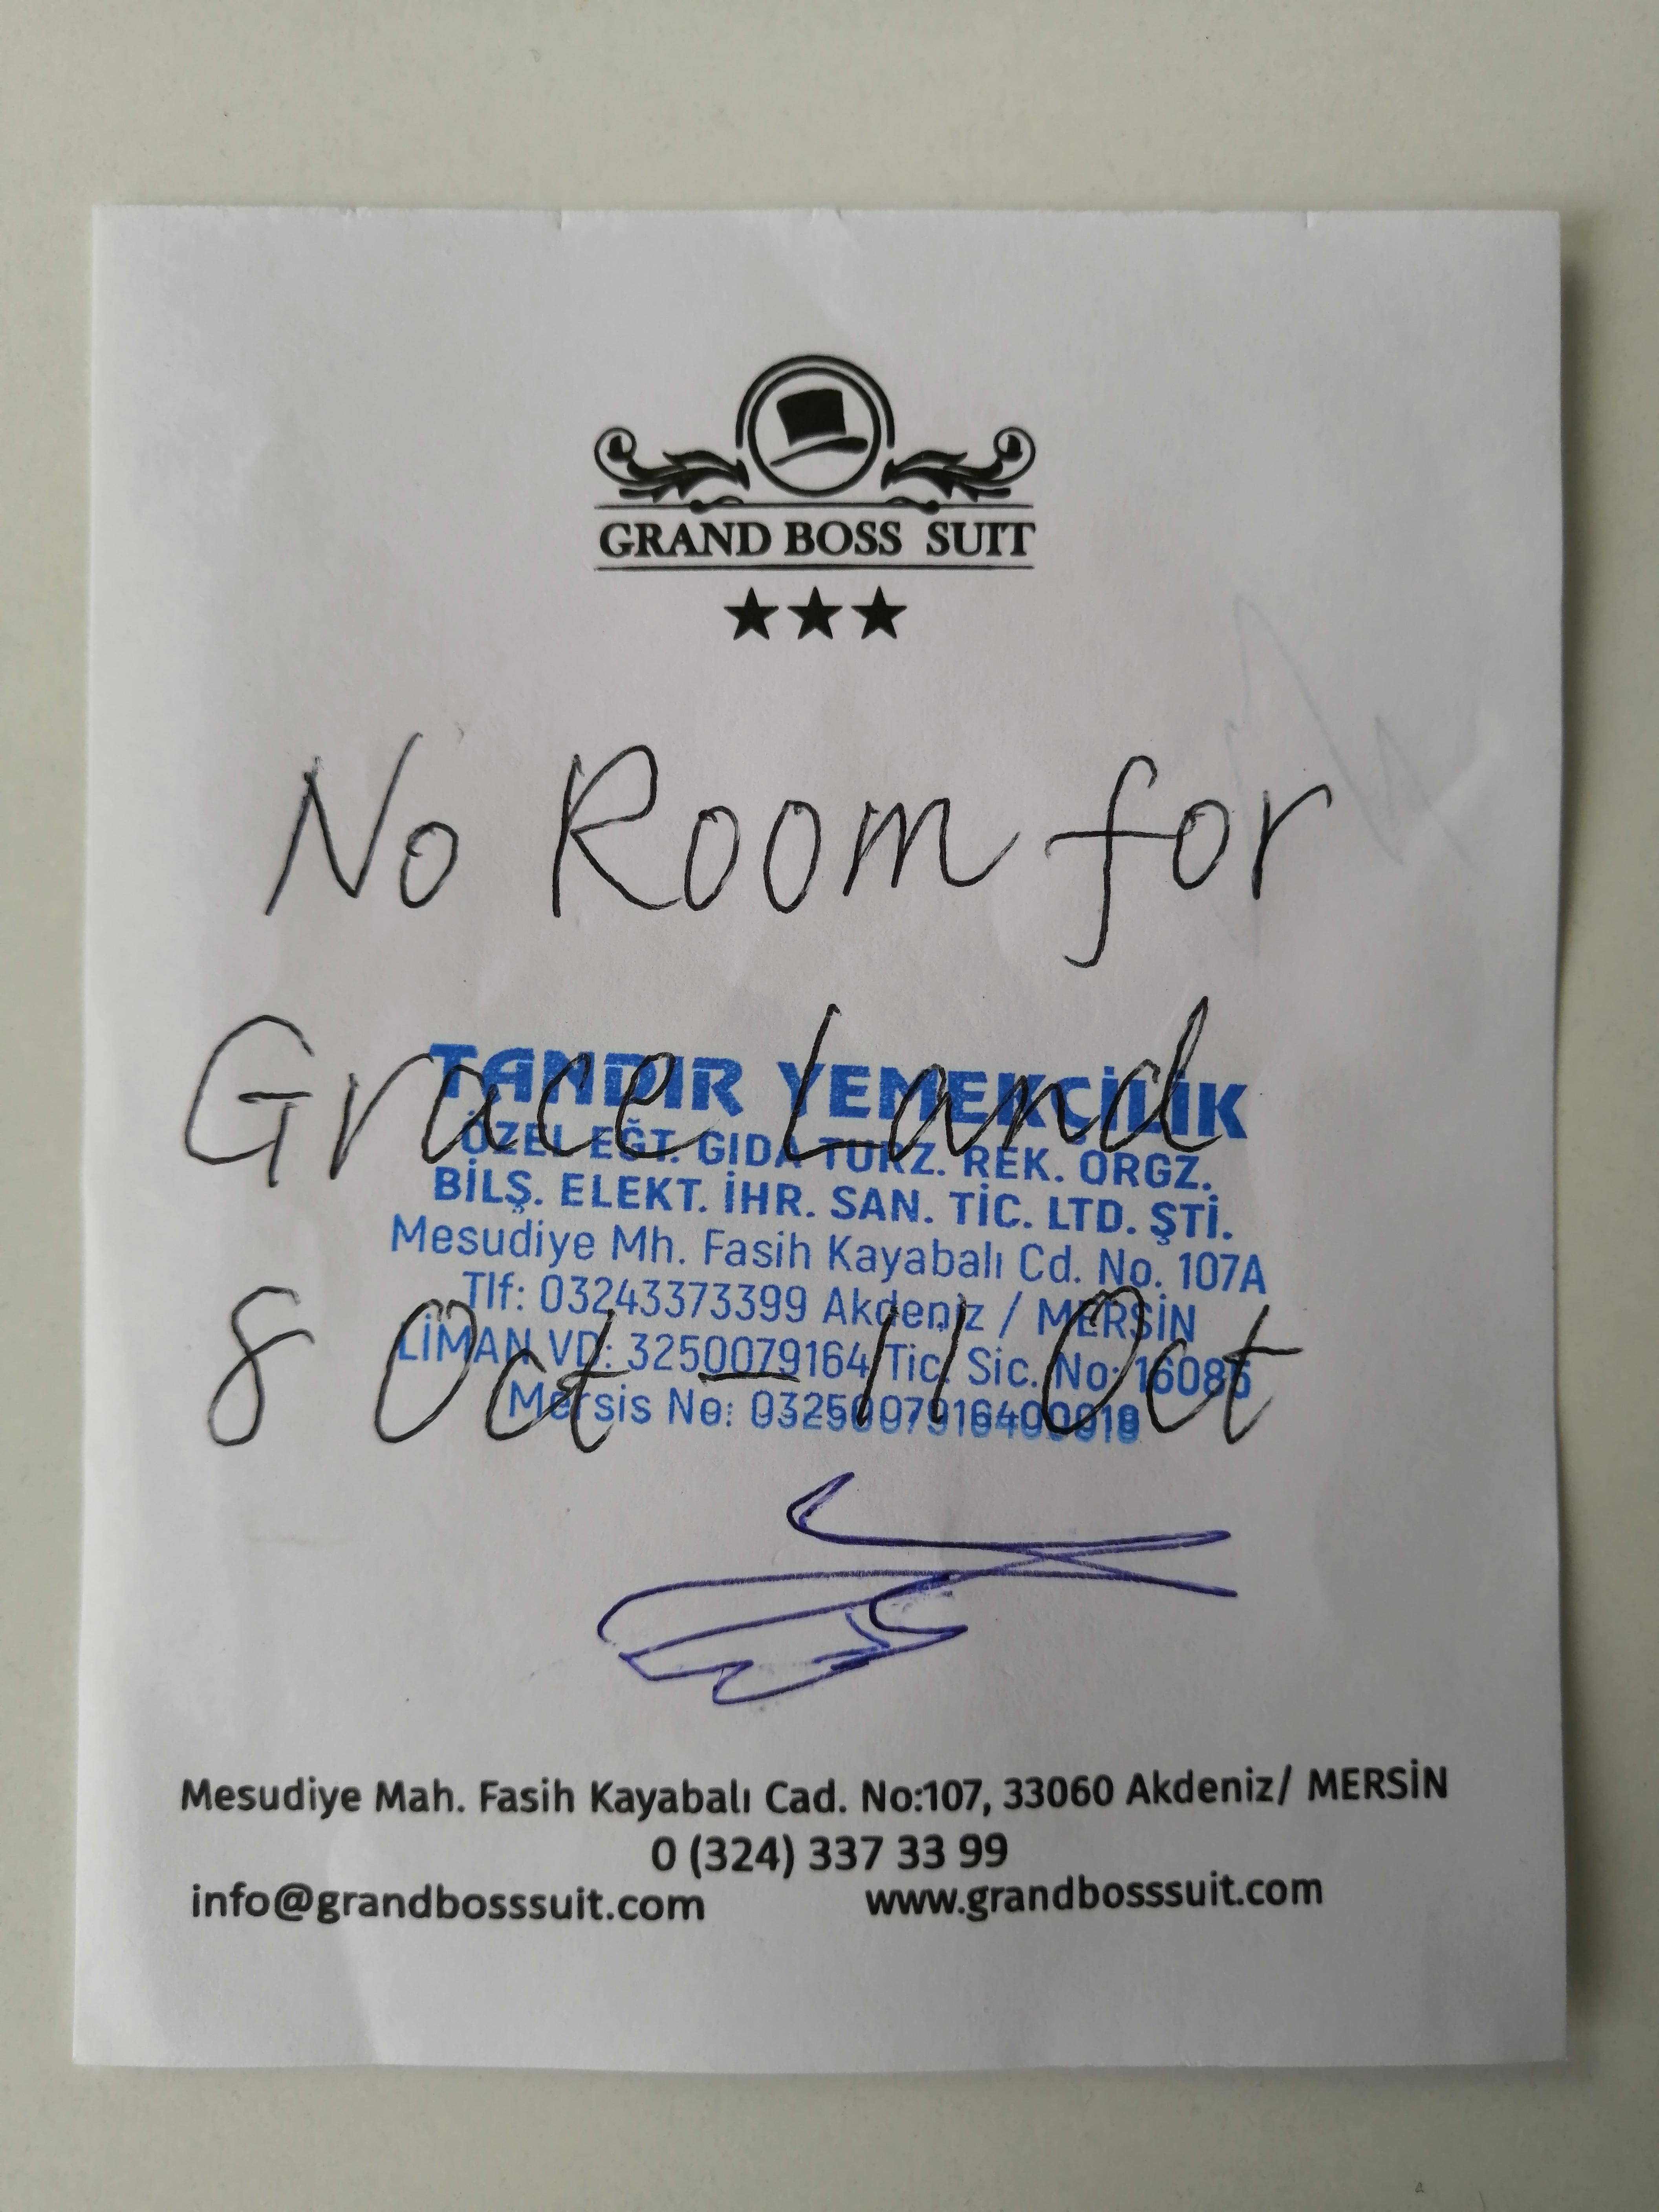 GRAND BOSS SUIT
No Room for
Grace Land
TANDIR YEMEKÇİLİK
ÖZEL EĞT. GIDA TURZ. REK. ORGZ.
BİLŞ. ELEKT. İHR. SAN. TİC. LTD. ŞTİ.
Mesudiye Mh. Fasih Kayabalı Cd. No. 107A
Tlf: 03243373399 Akdeniz / MERSİN
8 Oct - 11 Oct
LİMAN VD: 3250079164 Tic. Sic. No: 16085
Mersis No: 0325007916400019
Mesudiye Mah. Fasih Kayabalı Cad. No:107, 33060 Akdeniz/ MERSİN
0 (324) 337 33 99
info@grandbosssuit.com www.grandbosssuit.com